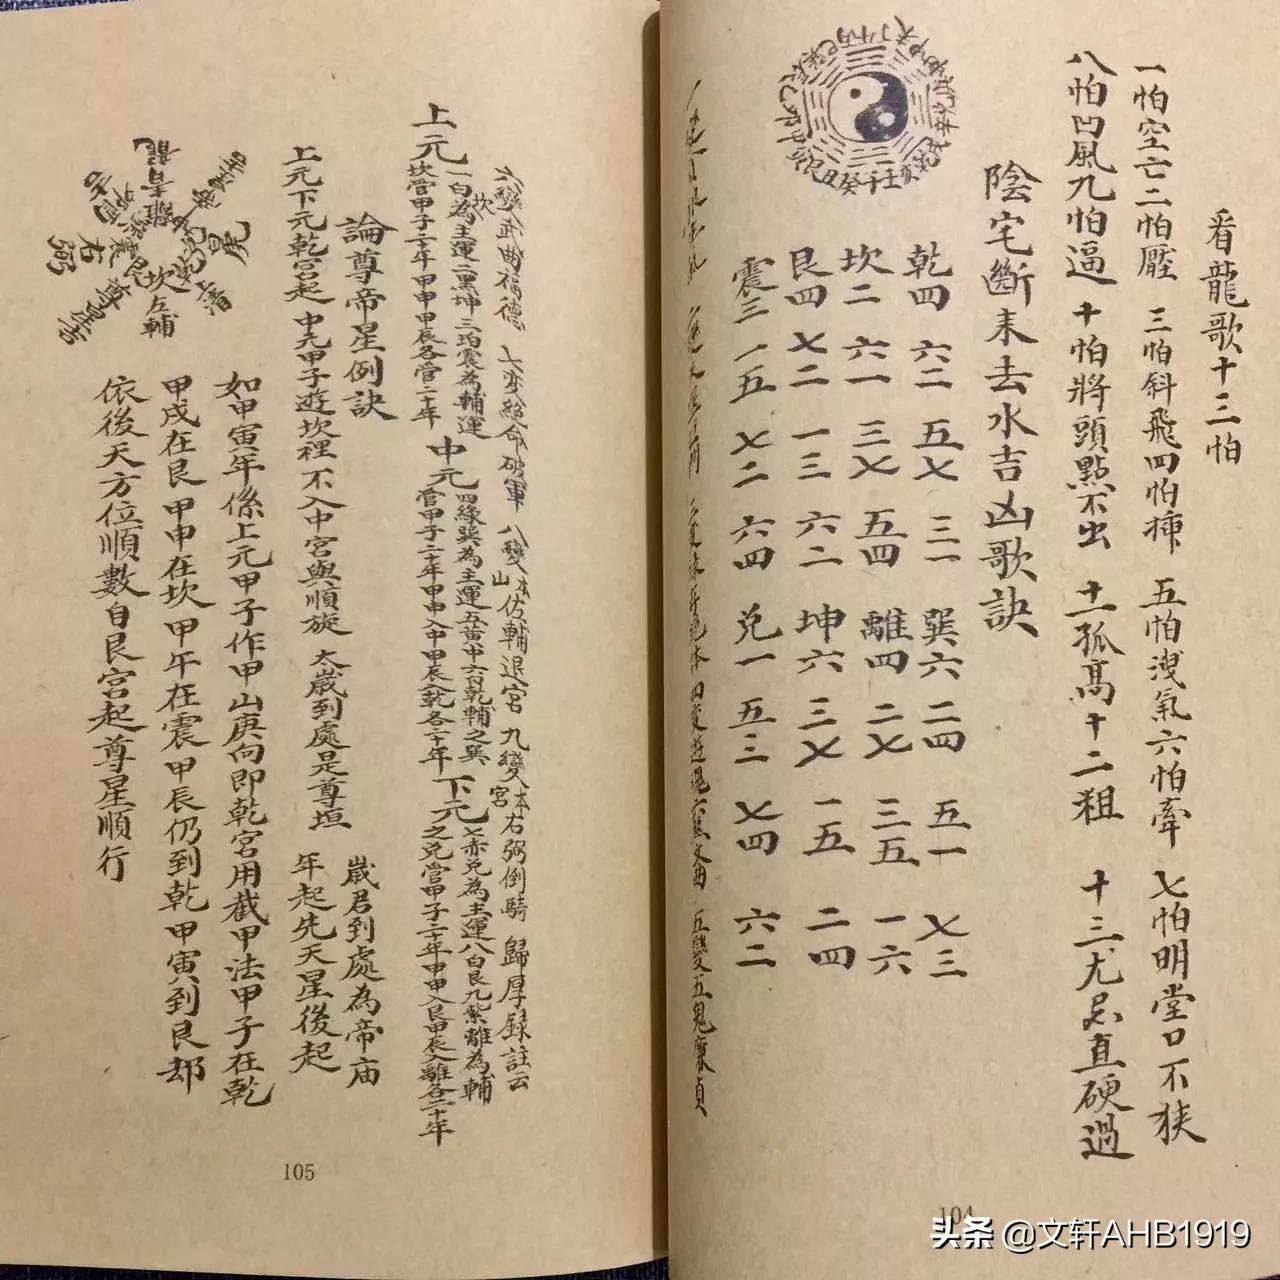 看龍歌十三怕
一怕空亡二怕壓 三怕斜飛四怕揷 五怕洩氣六怕牽 七怕明堂口不狹
八怕凹風九怕逼 十怕將頭點不出 十一孤高十二粗 十三尤忌直硬過
陰宅斷来去水吉凶歌訣
乾四 六二 五七 三一 巽六 二四 五一 七三
坎二 六一 三七 五四 離四 二七 三五 一六
艮四 七二 一三 六二 坤六 三七 一五 二四
震三 一五 七二 六四 兌一 五三 七四 六二
五變五鬼廉貞
104
六變武曲福德 七变絕命破軍 八變本山佐輔退宮 九變本宮右弼倒騎 歸厚錄註云
上元 一白為主運二黑坤三珀震為輔運 坎
坎當甲子二十年甲申甲辰各管二十年
中元 四緣巽為主運五黃中六白乾輔之巽
當甲子二十年甲申入中甲辰入乾各二十年
下元 七赤兌為主運八白艮九紫離為輔
之兌當甲子二十年甲申入艮甲辰入離各二十年
論尊帝星例訣
上元下元乾宮起 中元甲子遊坎裡 不入中宮與順旋 太歲到處是尊垣
歲君到處為帝庙
年起先天星後起
如甲寅年係上元甲子作甲山庚向即乾宮用截甲法甲子在乾
甲戌在艮甲申在坎甲午在震甲辰仍到乾甲寅到艮却
依後天方位順數自艮宮起尊星順行
坎左輔
右弼
105
头条 @文轩AHB1919